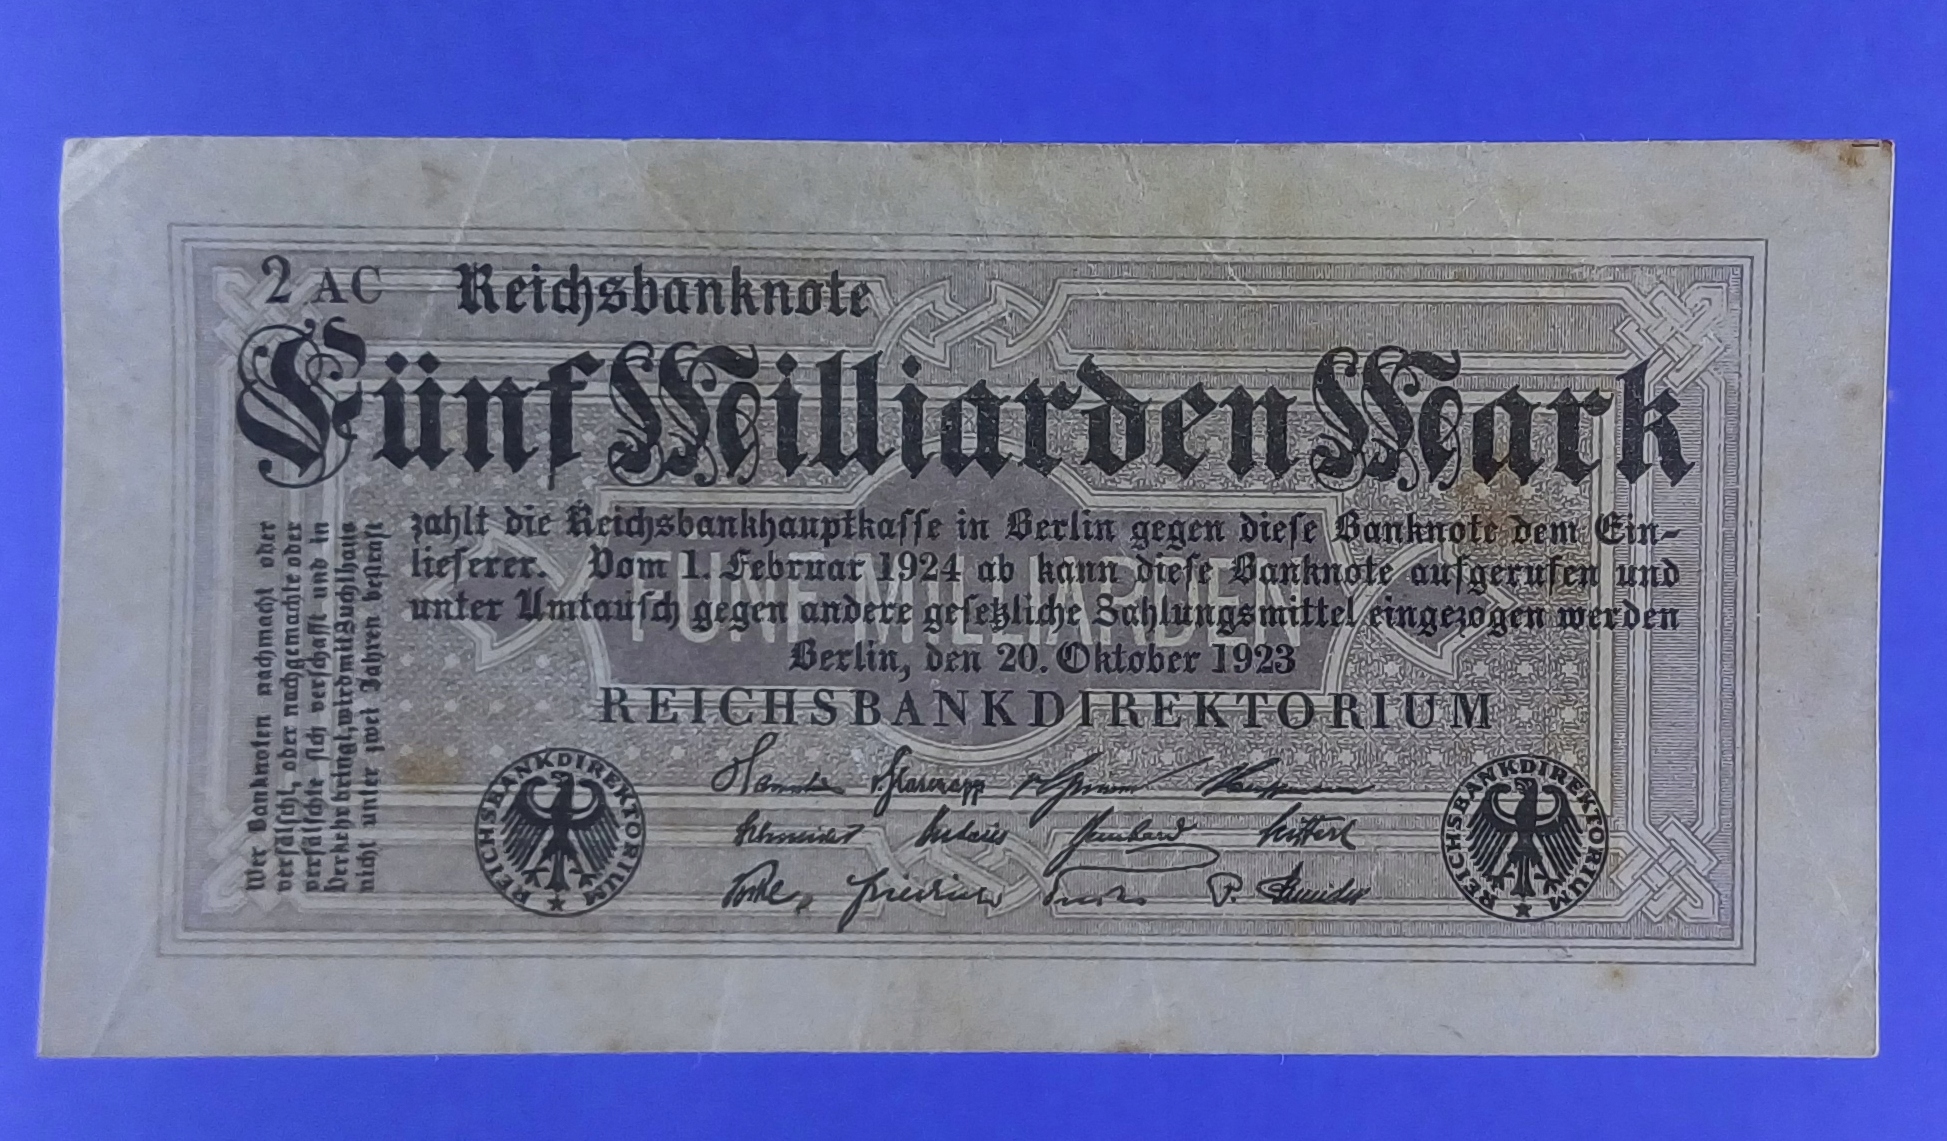 2 AC Reichsbanknote
Fünf Milliarden Mark
zahlt die Reichsbankhauptkasse in Berlin gegen diese Banknote dem Ein-
lieferer. Vom 1. Februar 1924 ab kann diese Banknote aufgerufen und
unter Umtausch gegen andere gesetzliche Zahlungsmittel eingezogen werden
FÜNF MILLIARDEN
Berlin, den 20. Oktober 1923
REICHSBANKDIREKTORIUM
Wer Banknoten nachmacht oder
verfälscht, oder nachgemachte oder
verfälschte sich verschafft und in
Verkehr bringt, wird mit Zuchthaus
nicht unter zwei Jahren bestraft
REICHSBANKDIREKTORIUM
v. Grimm Kauffmann
Schneider Budczies Bernhard Seiffert
Vocke Friedrich P. Schneider
REICHSBANKDIREKTORIUM